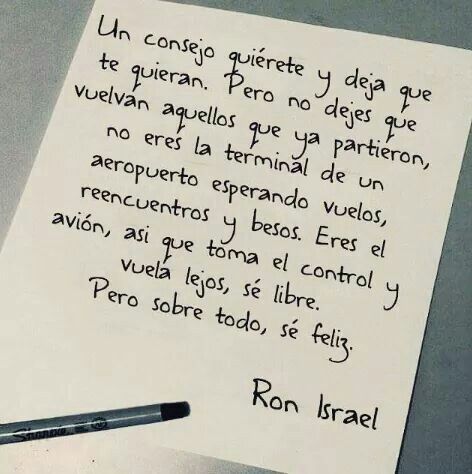 Un consejo quiérete y deja que
te quieran. Pero no dejes que
vuelvan aquellos que ya partieron,
no eres la terminal de un
aeropuerto esperando vuelos,
reencuentros y besos. Eres el
avión, asi que toma el control y
vuela lejos, sé libre.
Pero sobre todo, sé feliz.
Ron Israel
Sharpie